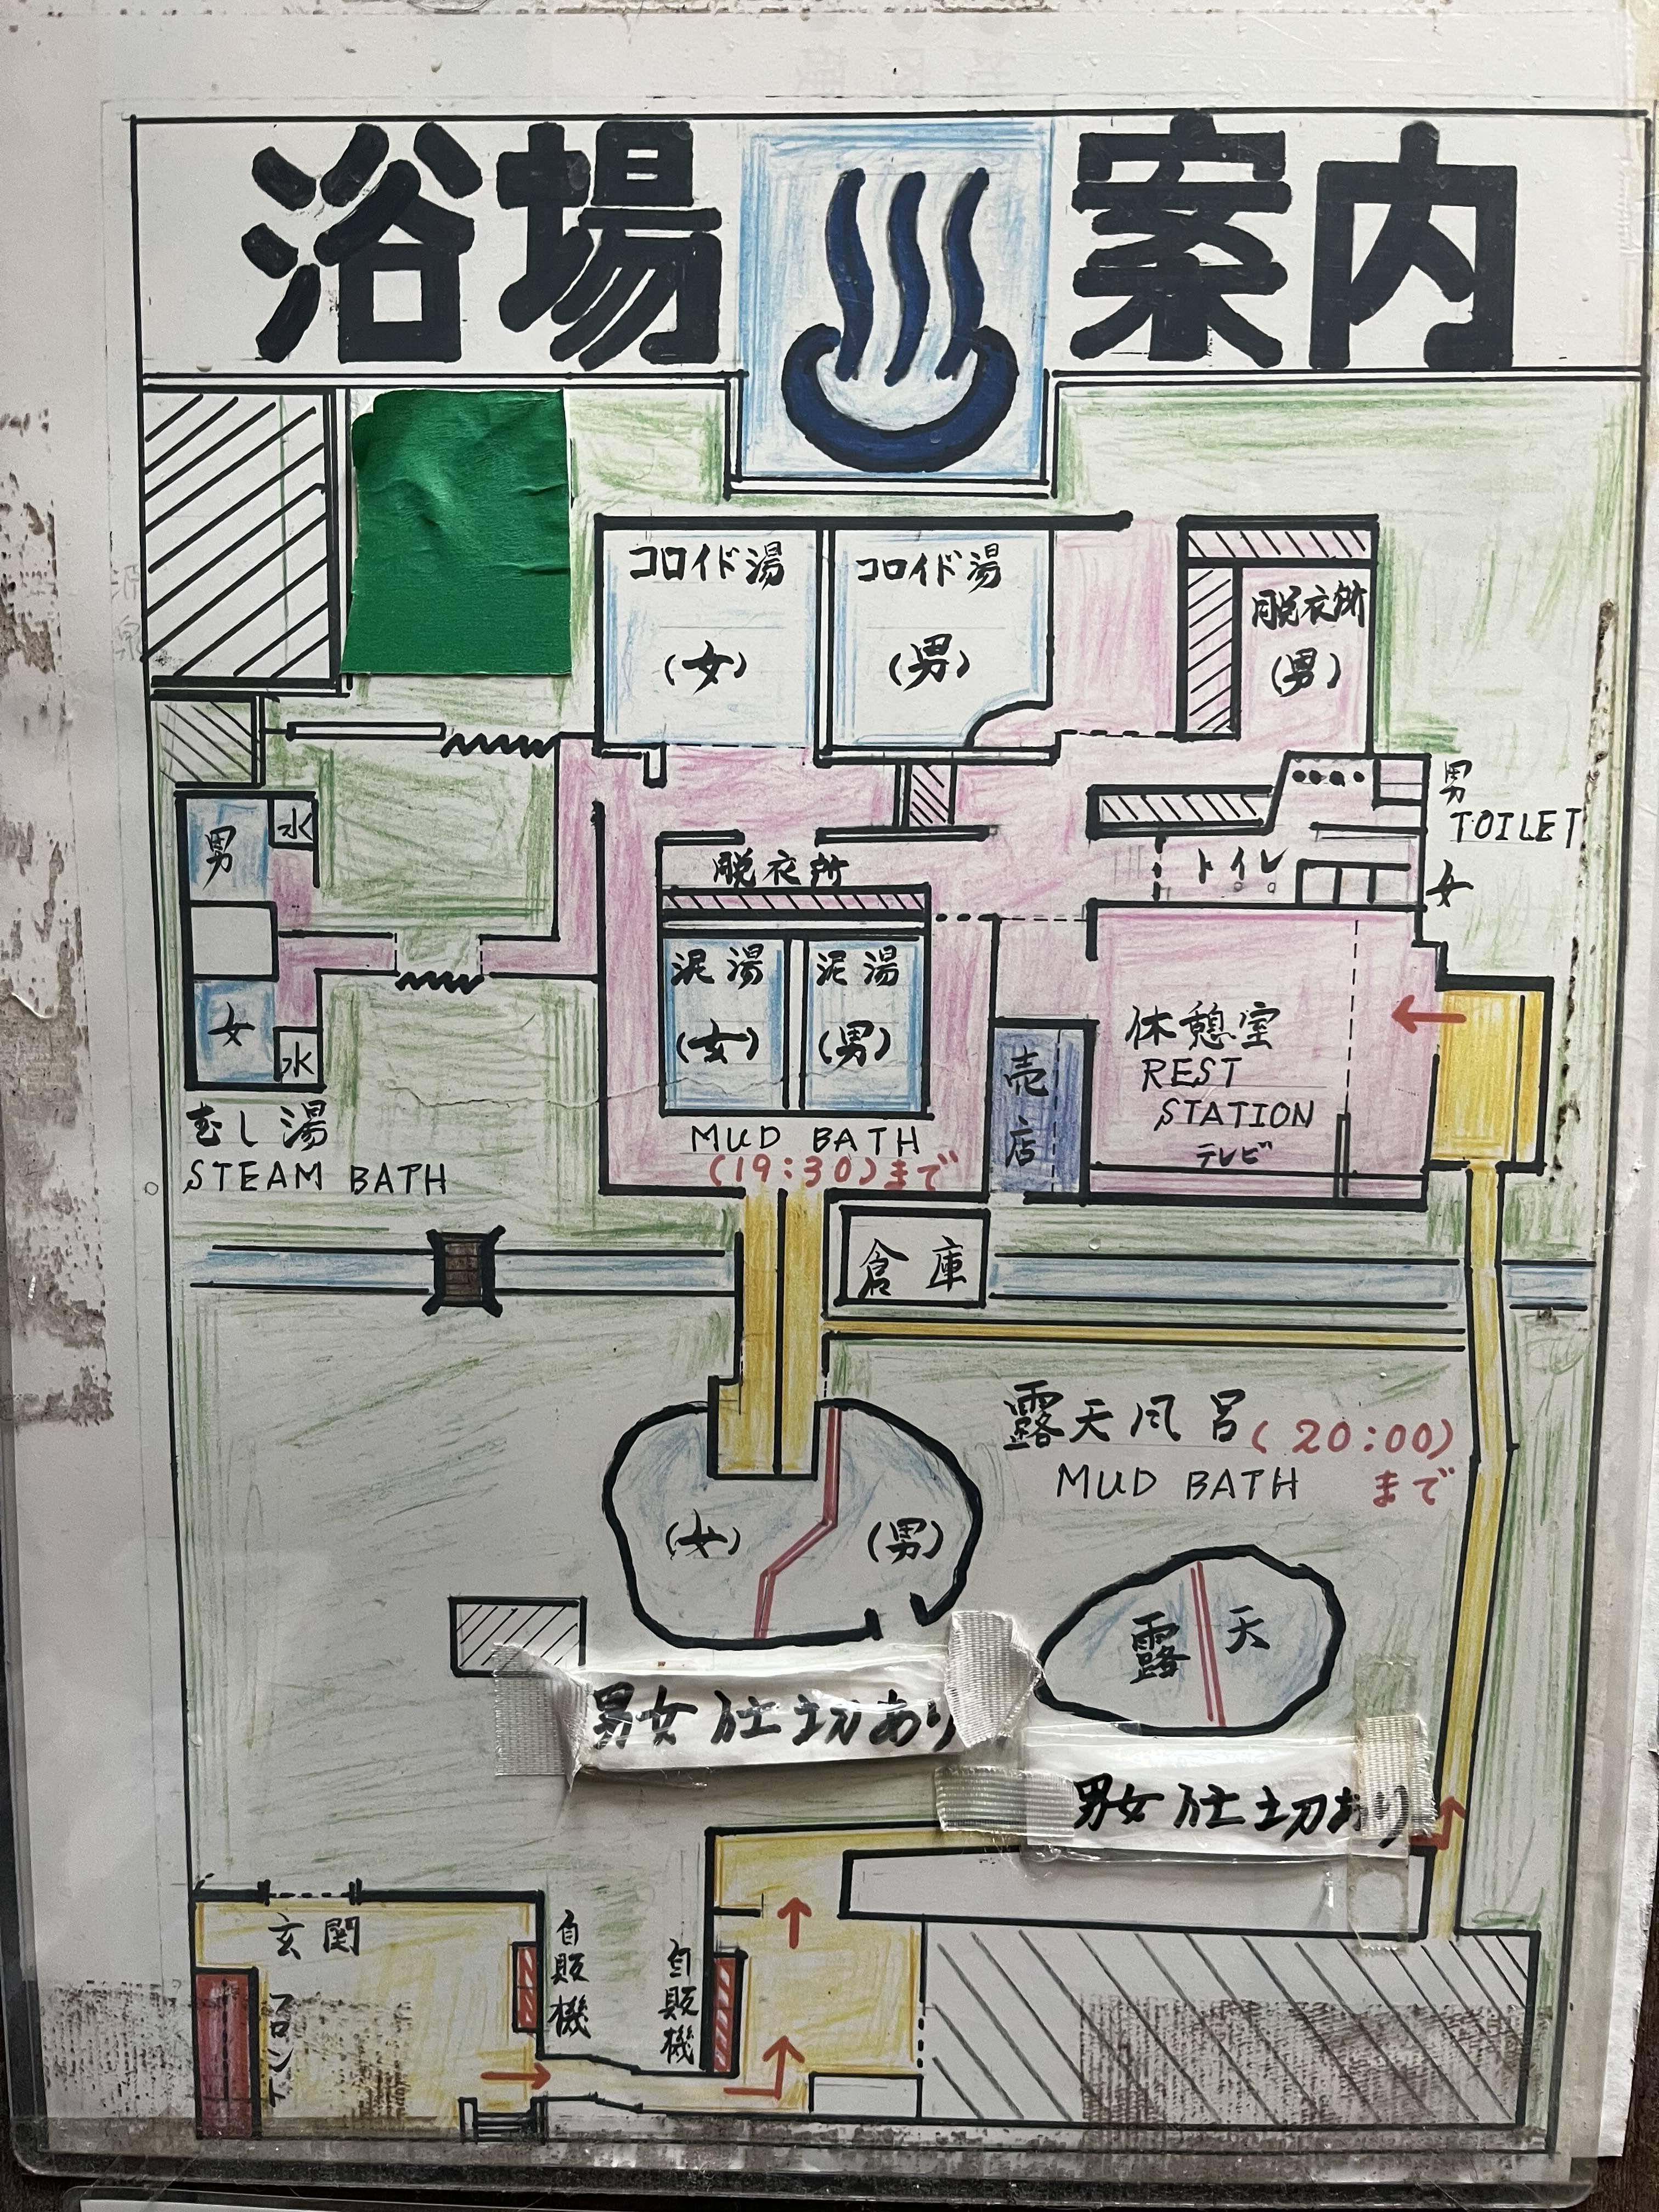 浴場 案内
コロイド湯
(女)
コロイド湯
(男)
脱衣所
(男)
男
水
男
TOILET
トイレ
女
脱衣所
泥湯
(女)
泥湯
(男)
女
水
むし湯
STEAM BATH
売店
休憩室
REST
STATION
テレビ
MUD BATH
(19:30)まで
倉庫
露天風呂(20:00)
MUD BATH まで
(女)
(男)
露天
男女仕切あり
男女仕切あり
玄関
フロント
自販機
自販機